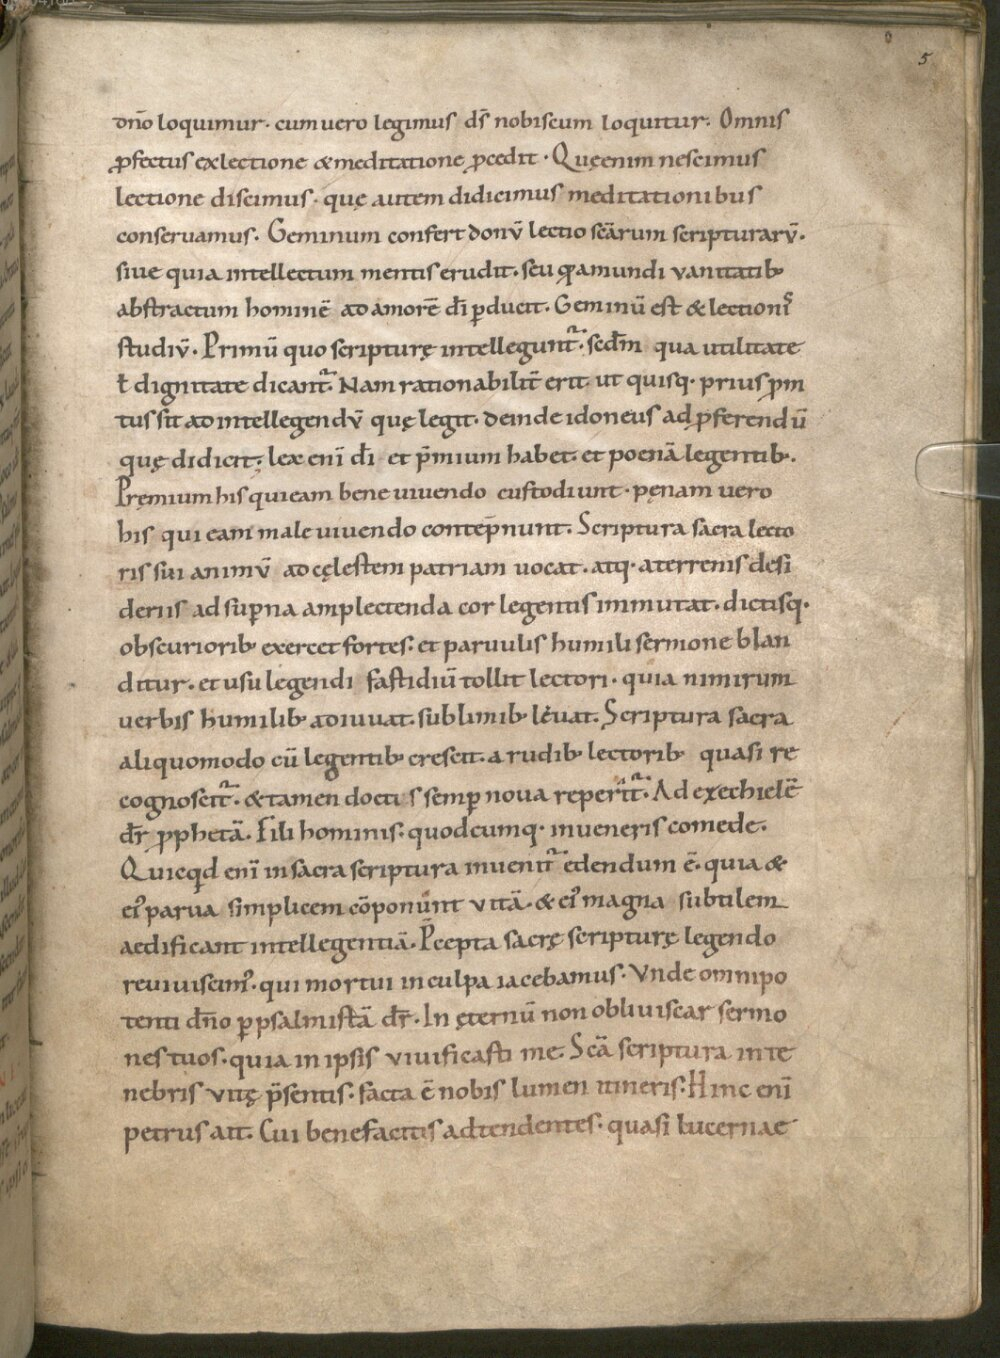 5
dño loquimur· cum uero legimus dś nobiscum loquitur. Omnis
ꝓfectus ex lectione & meditatione ꝓcedit · Quę enim nescimus
lectione discimus· quę autem didicimus meditationibus
conseruamus. Geminum confert donū lectio scārum scripturarū.
siue quia intellectum mentis erudit. seu q̄ a mundi vanitatib;
abstractum hominē ad amorē dī ꝑducit. Geminū est & lectionis
studiū. Primū quo scripturę intellegunt᷑. sed̄m qua utilitate
ł dignitate dicant᷑. Nam rationabilit̄ erit ut quisq· prius ꝓm
tus sit ad intellegendū quę legit. deinde idoneus ad ꝓferendū
quę didicit; lex enī dī et p̄mium habet. et poenā legentib;.
Pręmium his qui eam bene uiuendo custodiunt· pęnam uero
his qui eam male uiuendo contep̄nunt. Scriptura sacra lecto
ris sui animū ad cęlestem patriam uocat. atq· a terrenis desi
deriis ad suꝑna amplectenda cor legentis inmutat. dictisq·
obscuriorib; exercet fortes. et paruulis humili sermone blan
ditur. et usu legendi fastidiū tollit lectori· quia nimirum
uerbis humilib; adiuuat. sublimib; leuat. Scriptura sacra
aliquomodo cū legentib; crescit. a rudib; lectorib; quasi re
cognoscit᷑. & tamen doctis semꝑ noua reperit᷑. Ad ezechielē
dr̄ ꝓphetā. Fili hominis. quodcumq· inueneris comede.
Quicqd enī in sacra scriptura inuenit᷑ edendum ē. quia &
ei᷒ parua simplicem cōponunt vitā. & ei᷒ magna subtilem
aedificant intellegentiā. P̄cepta sacrę scripturę legendo
reuiuiscim᷒. qui mortui in culpa iacebamus. Vnde omnipo
tenti dño ꝑ psalmistā dr̄. In ęternū non obliuiscar sermo
nes tuos. quia in ipsis viuificasti me. Scā scriptura in te
nebris vitę p̄sentis. facta ē nobis lumen itineris. Hinc enī
petrus ait. Cui benefacitis adtendentes· quasi lucernae